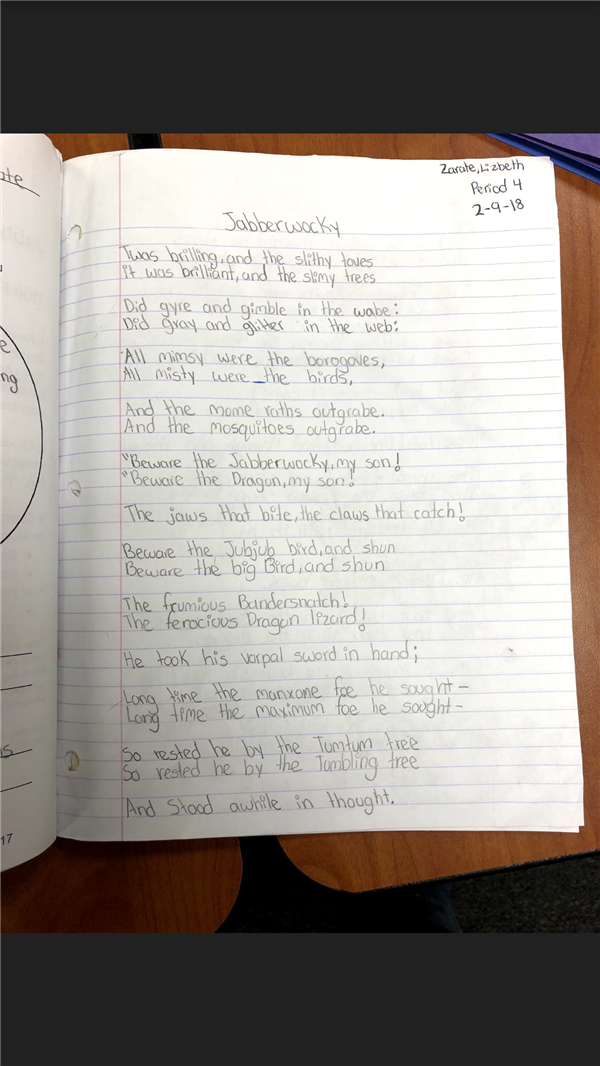 Zarate, Lizbeth
Period 4
2-9-18
Jabberwocky
Twas brilling, and the slithy toves
it was brilliant, and the slimy trees
Did gyre and gimble in the wabe:
Did gray and glitter in the web:
All mimsy were the borogoves,
All misty were the birds,
And the mome raths outgrabe.
And the mosquitoes outgrabe.
"Beware the Jabberwocky, my son!
"Beware the Dragon, my son!
The jaws that bite, the claws that catch!
Beware the Jubjub bird, and shun
Beware the big Bird, and shun
The frumious Bandersnatch!
The ferocious Dragon lizard!
He took his vorpal sword in hand;
Long time the manxone foe he sought-
Long time the maximum foe he sought-
So rested he by the Tumtum tree
So rested he by the Tumbling tree
And Stood awhile in thought.
ng
17